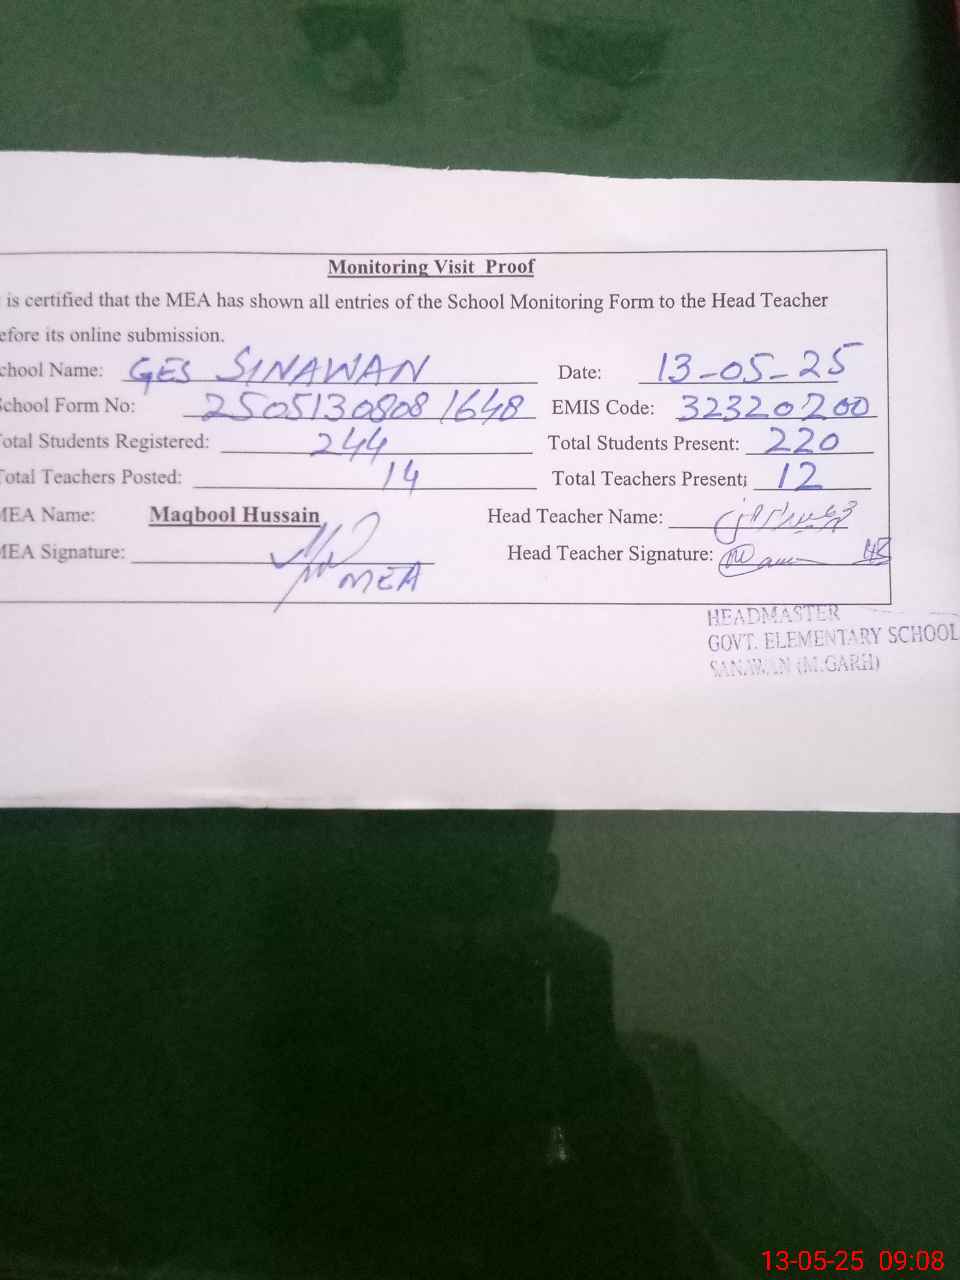 Monitoring Visit Proof
is certified that the MEA has shown all entries of the School Monitoring Form to the Head Teacher
efore its online submission.
chool Name: GES SINAWAN Date: 13-05-25
School Form No: 25051308081648 EMIS Code: 32320200
otal Students Registered: 244 Total Students Present: 220
Total Teachers Posted: 14 Total Teachers Present; 12
MEA Name: Maqbool Hussain Head Teacher Name:
MEA Signature: MEA Head Teacher Signature:
HEADMASTER
GOVT. ELEMENTARY SCHOOL
SANAWAN (M.GARH)
13-05-25 09:08